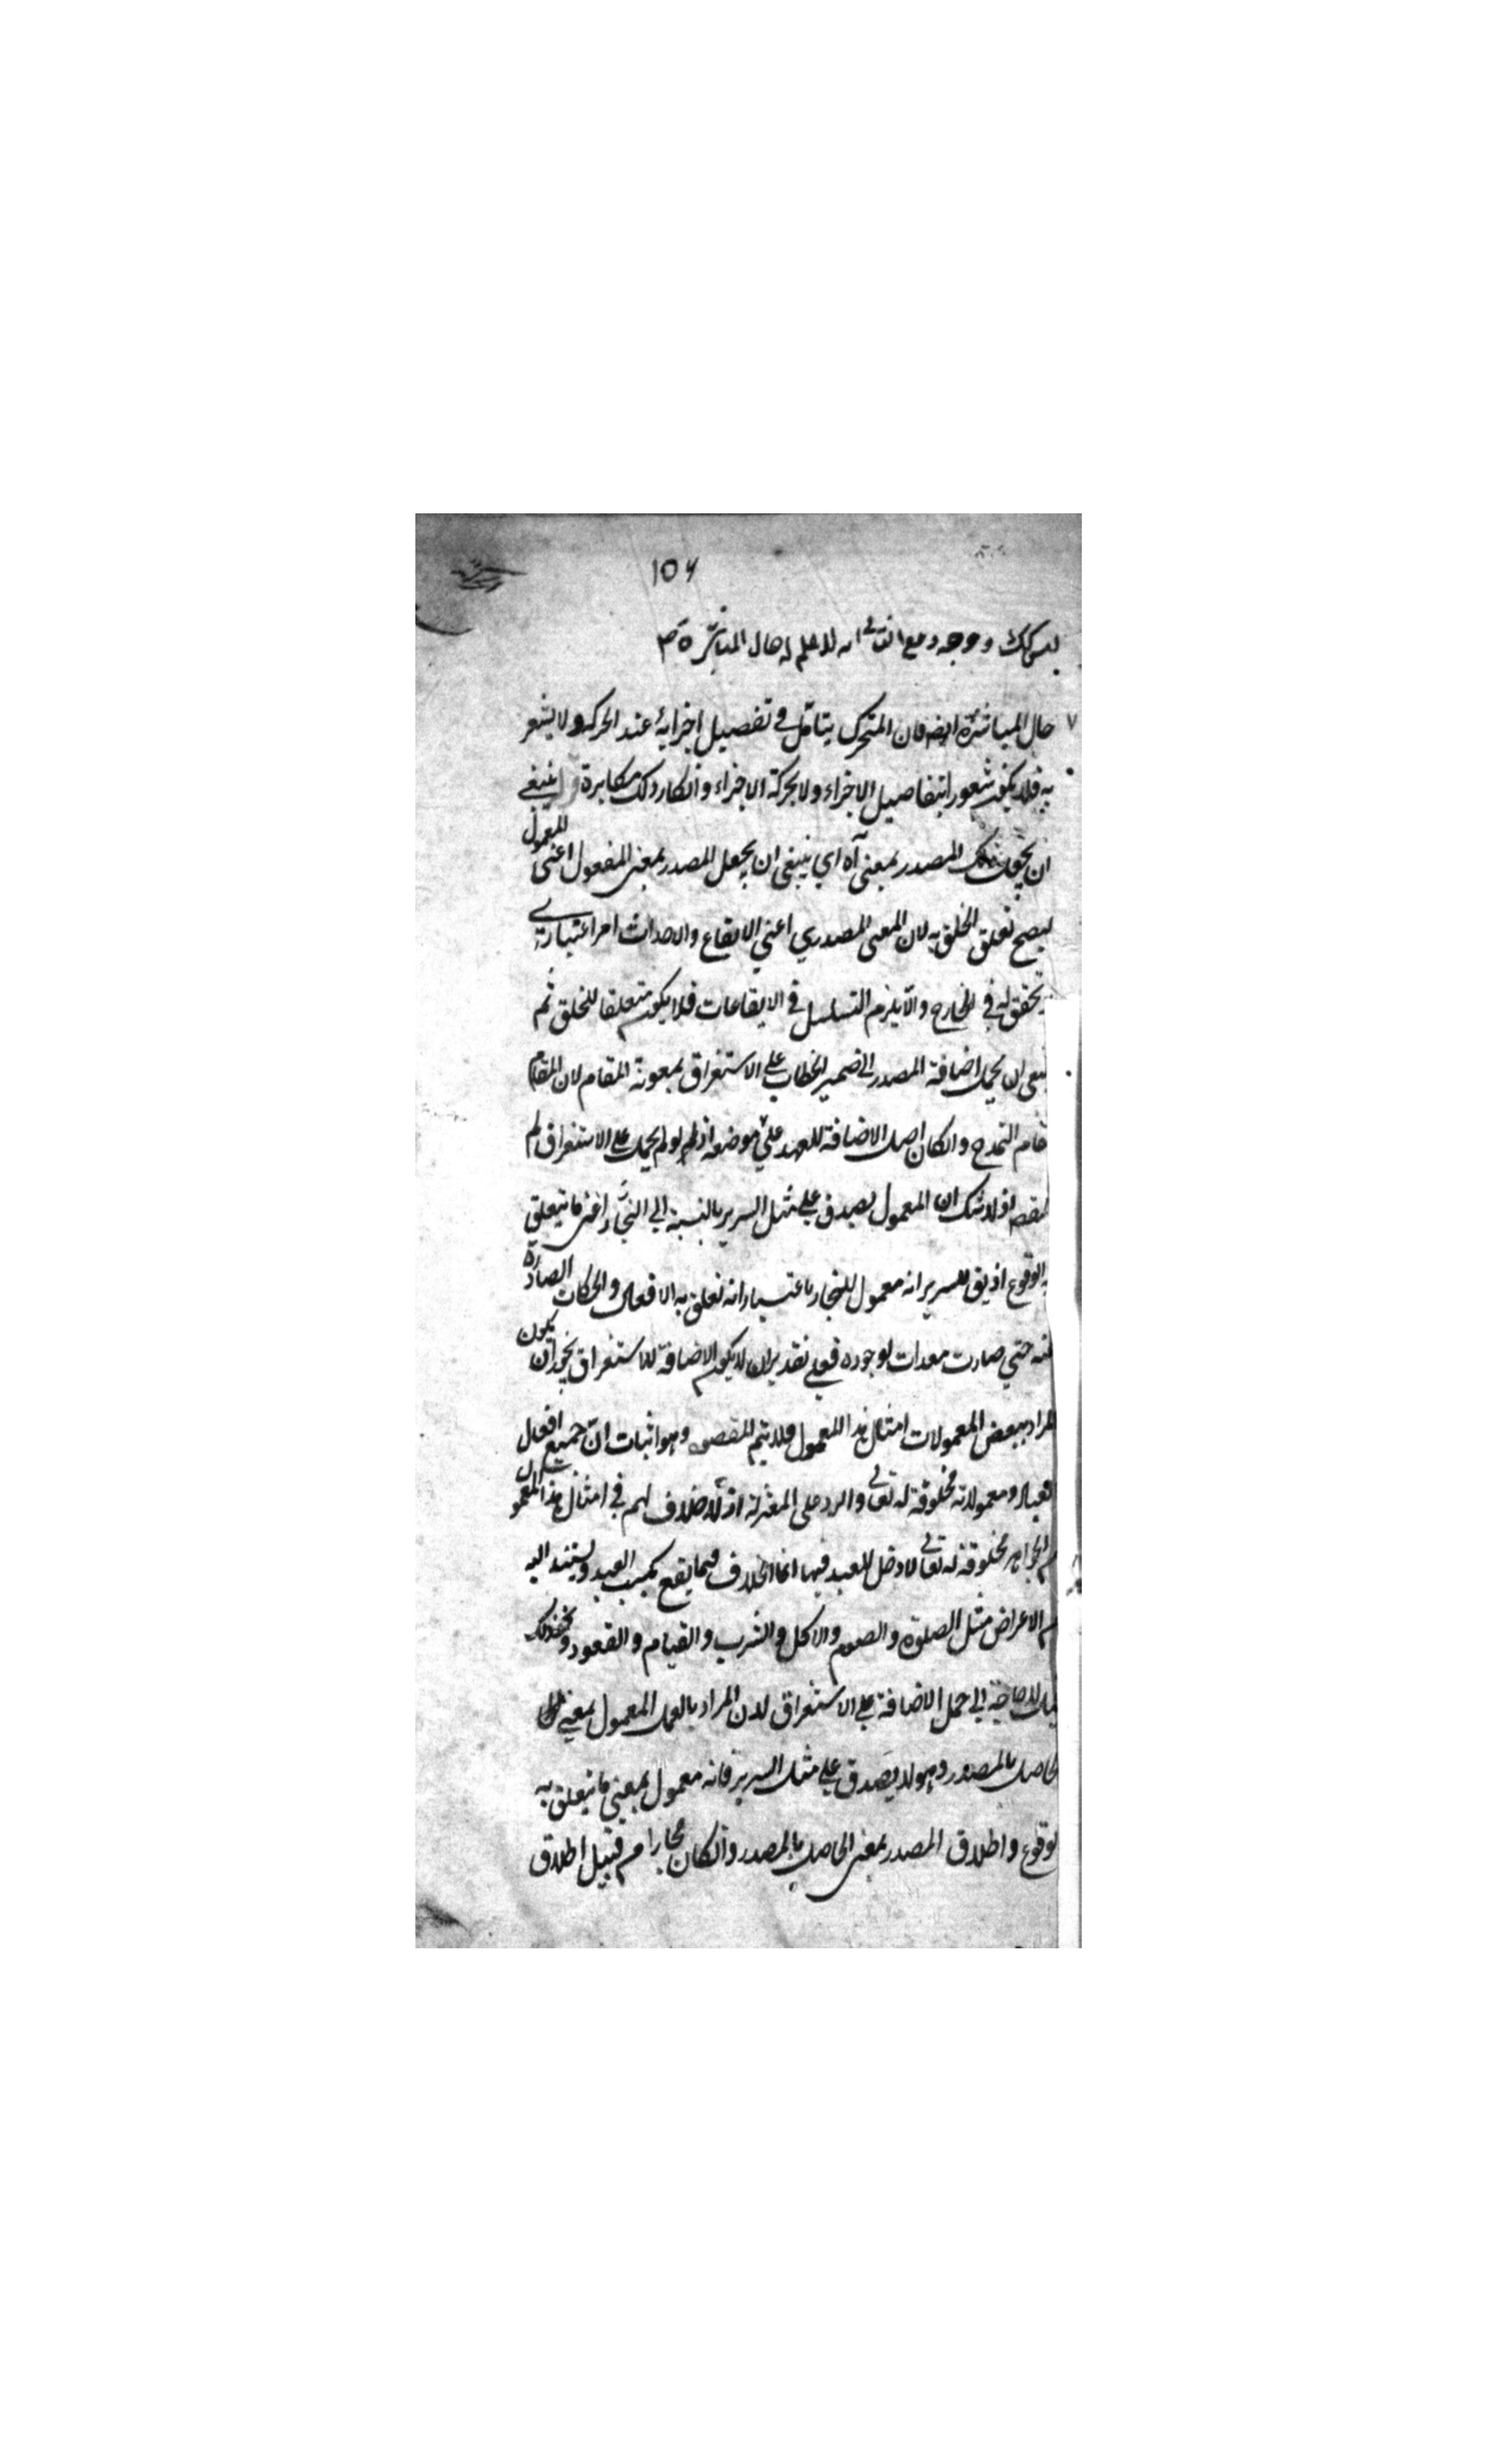 156
ليس كك وجود مع انه لا علم له حال المباشرة
حال المباشرة ايضه فان المتحرك يتامّل في تفصيل اجزائه عند الحركة ولا يشعر
به فلا يكون شعورا بتفاصيل الاجزاء ولا بحركة الاجزاء وانكار ذلك مكابرة ينبغي
ان يجعل المصدر بمعنى آه اي ينبغي ان يجعل المصدر بمعنى المفعول اعنى المعمول
ليصح تعلق الخلق به لان المعنى المصدري اعني الايقاع والاحداث امر اعتباري
تحقق له في الخارج والّا يلزم التسلسل في الايقاعات فلا يكون متعلقا للخلق ثم
ينبغي ان يحمل اضافة المصدر الى ضمير الخطاب على الاستغراق بمعونة المقام لان المقام
مقام التمدح وانكان اصل الاضافة للعهد على موضعه اذ لو لم يحمل على الاستغراق لم
المقصه اذ لا شك ان المعمول يصدق على مثل السرير بالنسبة الى النجّار اعنى ما يتعلق
به الوقوع اذ يق للسرير انه معمول للنجار باعتبار انه تعلق به الافعال والحركات الصادرة
منه حتي صارت معدات لوجوده فعلى تقدير ان لا يكون الاضافة للاستغراق يجوز ان يكون
المراد ببعض المعمولات امثال هذا المعمول فلا يتم المقصود وهو اثبات انّ جميع افعال
العباد ومعمولاته مخلوقة له تعالى والرد على المعتزلة اذ لا خلاف لهم في امثال هذا المعمول
من الجواهر مخلوقة له تعالى لا دخل للعبد فيها انما الخلاف فيما يقع بكسب العبد ويستند اليه
من الاعراض مثل الصلوة والصوم والاكل والشرب والقيام والقعود ونحو ذلك
قيل لا حاجة الى حمل الاضافة على الاستغراق لان المراد بالعمل المعمول بمعنى
الحاصل بالمصدر وهو لا يصدق على مثل السرير فانه معمول بمعنى ما يتعلق به
الوقوع واطلاق المصدر بمعنى الحاصل بالمصدر وانكان مجازا من قبيل اطلاق